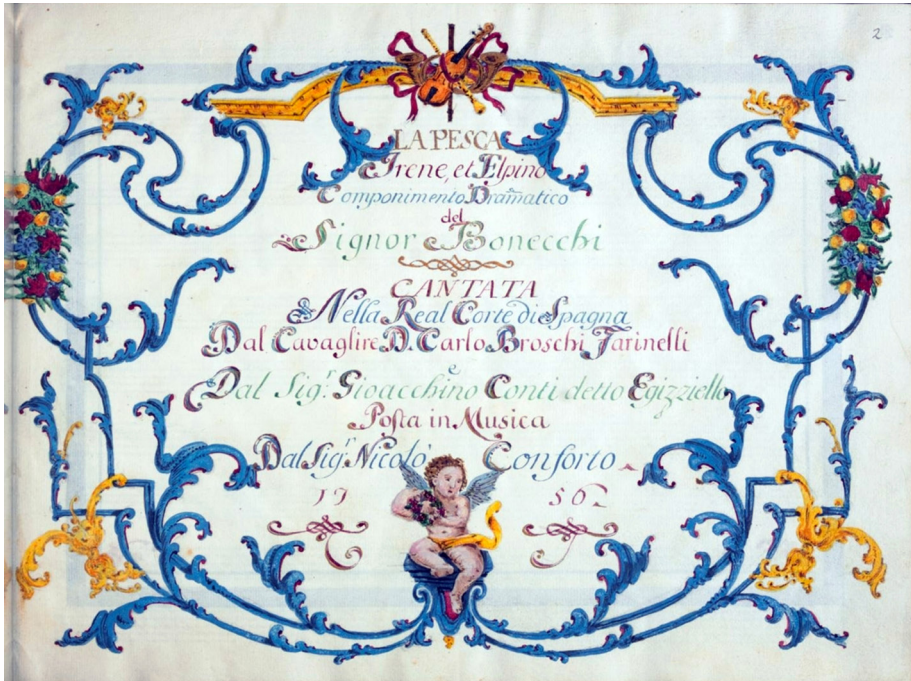 2
LA PESCA
Irene, et Elpino
Componimento Dramatico
del
Signor Bonecchi
CANTATA
Nella Real Corte di Spagna
Dal Cavaglire D. Carlo Broschi Farinelli
e
Dal Sig.r Gioacchino Conti detto Egizziello
Posta in Musica
Dal Sig.r Nicolò Conforto
1756